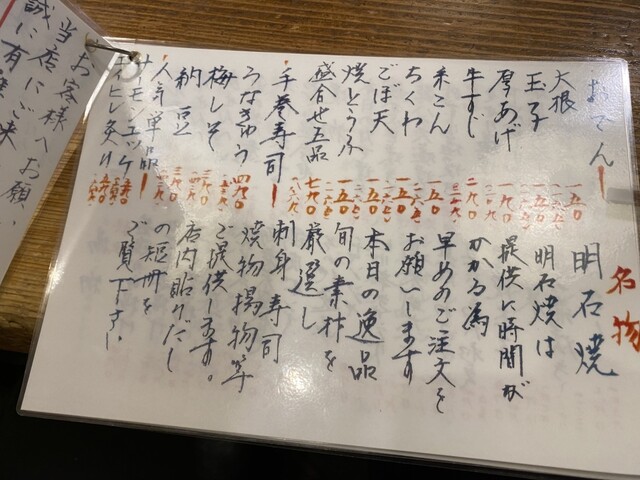 おでん
大根 一五〇
玉子 一五〇
厚あげ 一九〇
牛すじ 二九〇
糸こん 一五〇
ちくわ 一五〇
ごぼ天 一五〇
焼とうふ 一五〇
盛合せ五品 七九〇
手巻寿司
うなきゅう 四九〇
梅しそ
納豆 二九〇
人気単品
サーモンユッケ
エイヒレ炙り
名物
明石焼
明石焼は
提供に時間が
かかる為
早めのご注文を
お願いします
本日の逸品
旬の素材を
厳選し
刺身 寿司
焼物 揚物等
ご提供します。
店内貼りだし
の短冊を
ご覧下さい
お客様へお願い
当店にご来
誠に有難